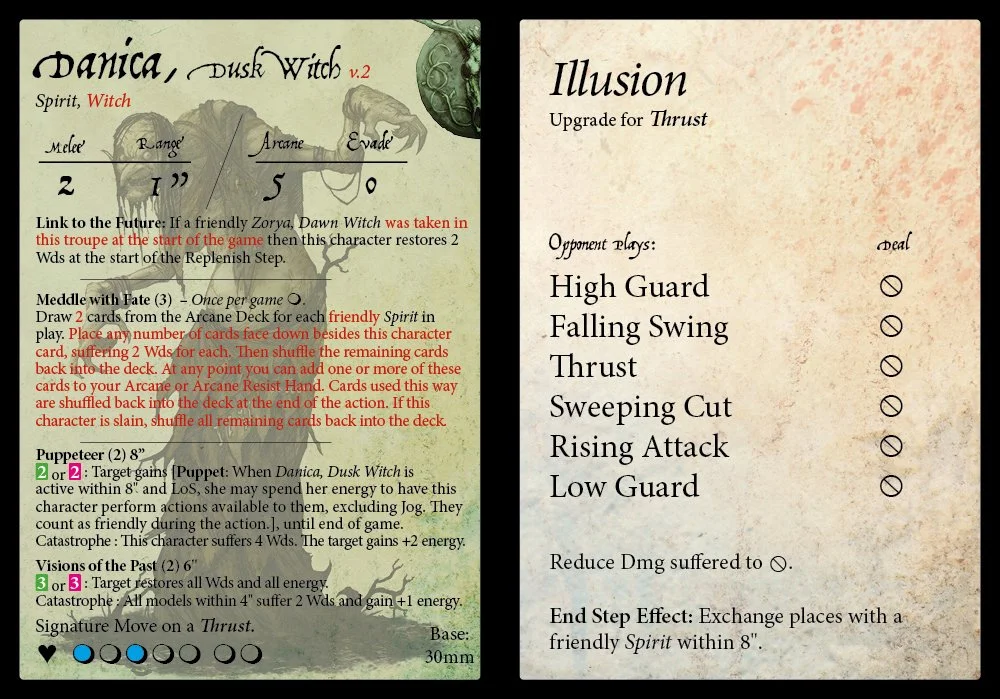 Danica, Dusk Witch v.2
Spirit, Witch
Melee Range Arcane Evade
2 1” 5 0
Link to the Future: If a friendly Zorya, Dawn Witch was taken in
this troupe at the start of the game then this character restores 2
Wds at the start of the Replenish Step.
Meddle with Fate (3) – Once per game ❍.
Draw 2 cards from the Arcane Deck for each friendly Spirit in
play. Place any number of cards face down besides this character
card, suffering 2 Wds for each. Then shuffle the remaining cards
back into the deck. At any point you can add one or more of these
cards to your Arcane or Arcane Resist Hand. Cards used this way
are shuffled back into the deck at the end of the action. If this
character is slain, shuffle all remaining cards back into the deck.
Puppeteer (2) 8”
2 or 2 : Target gains [Puppet: When Danica, Dusk Witch is
active within 8" and LoS, she may spend her energy to have this
character perform actions available to them, excluding Jog. They
count as friendly during the action.], until end of game.
Catastrophe : This character suffers 4 Wds. The target gains +2 energy.
Visions of the Past (2) 6"
3 or 3 : Target restores all Wds and all energy.
Catastrophe : All models within 4" suffer 2 Wds and gain +1 energy.
Signature Move on a Thrust.
Base:
30mm
Illusion
Upgrade for Thrust
Opponent Plays: Deal
High Guard
Falling Swing
Thrust
Sweeping Cut
Rising Attack
Low Guard
Reduce Dmg suffered to ⃠.
End Step Effect: Exchange places with a
friendly Spirit within 8".